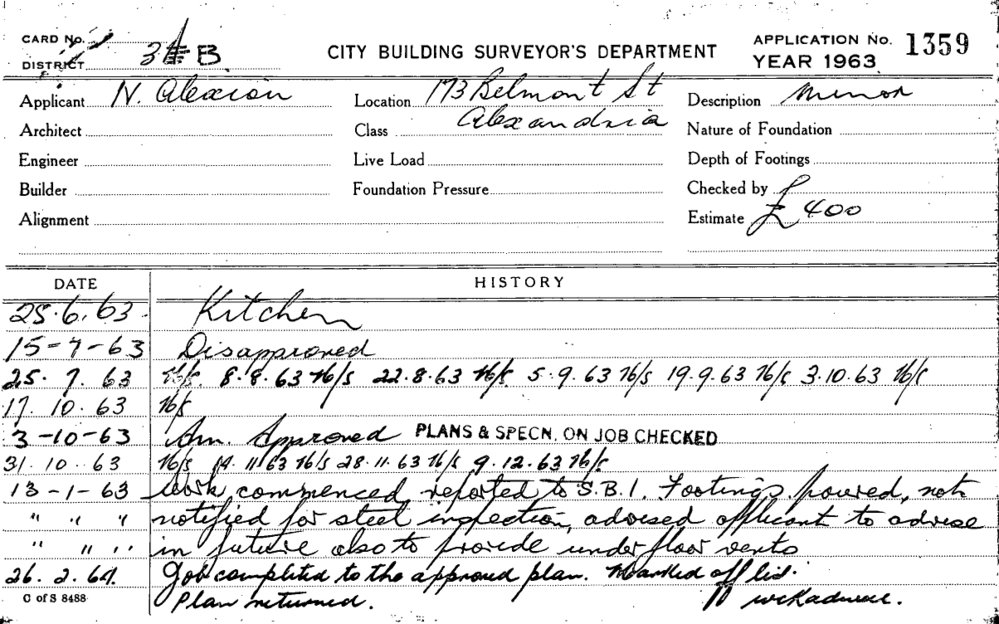 CARD No.
DISTRICT 3 B
CITY BUILDING SURVEYOR'S DEPARTMENT
APPLICATION No. 1359
YEAR 1963
Applicant N. Alexion
Location 173 Belmont St
Alexandria
Description Minor
Architect
Class
Nature of Foundation
Engineer
Live Load
Depth of Footings
Builder
Foundation Pressure
Checked by
Alignment
Estimate £ 400
DATE HISTORY
25.6.63 Kitchen
15-7-63 Disapproved
25.7.63 N/S 8.8.63 N/S 22.8.63 N/S 5.9.63 N/S 19.9.63 N/S 3.10.63 N/S
17.10.63 N/S
3-10-63 Am. Approved PLANS & SPECN. ON JOB CHECKED
31.10.63 N/S 14.11.63 N/S 28.11.63 N/S 9.12.63 N/S
13-1-63 Work commenced, reported to S.B.I. Footings poured, not
" " " notified for steel inspection, advised applicant to advise
" " " in future also to provide under floor vents
26.2.64. Job completed to the approved plan. Marked off list.
C of S 8488 Plan returned.